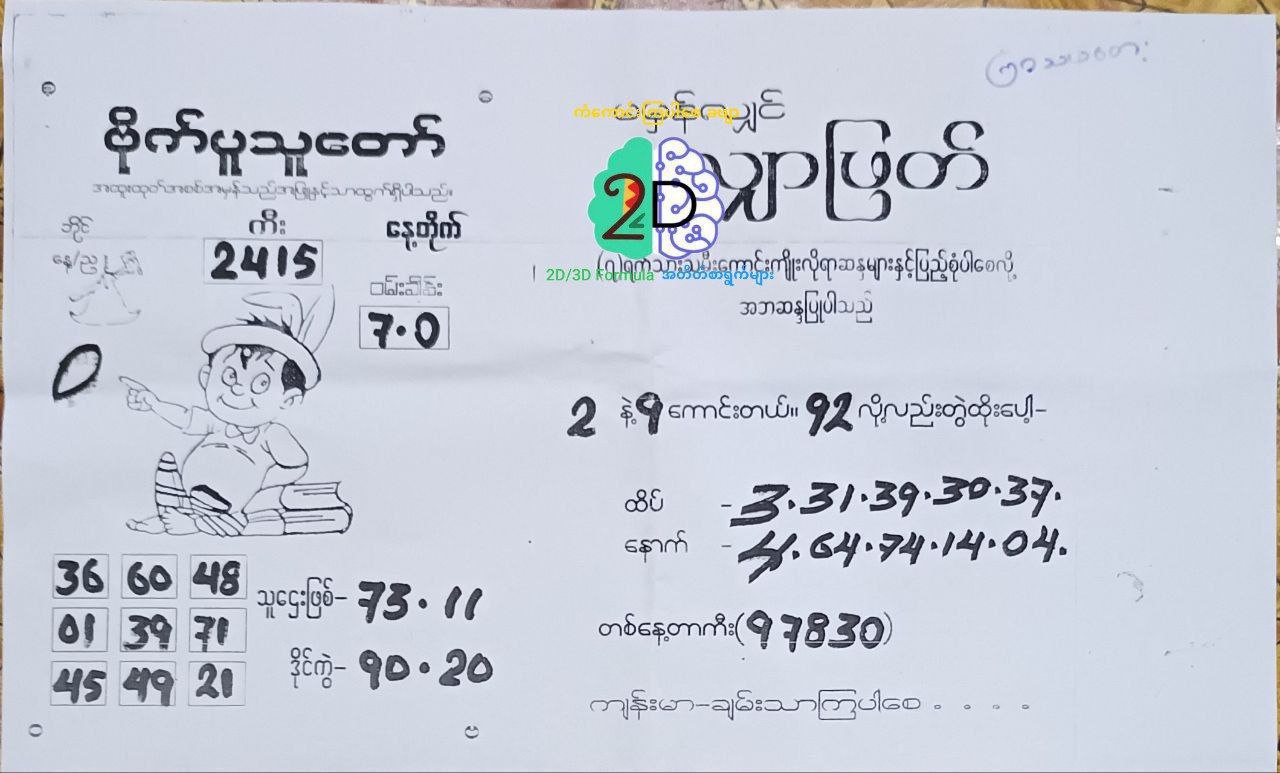 ဗိုက်ပူသူတော်
အထူးထုတ်အစစ်အမှန်သည်အပြုနှင့်သာထွက်ရှိပါသည်။
ဘိုင်
နေ/ည
ကီး
2415
နေ့တိုက်
ဝမ်းချိန်း
7.0
0
36 60 48
01 39 71
45 49 21
သူဌေးဖြစ်- 73.11
ဒိုင်ကွဲ- 90.20
မမှန်လျှင်
လျှာဖြတ်
ကံကောင်းကြပါစေ ဗျာ
2D
2D/3D Formula အတိတ်စာရွက်များ
(၇)ရက်သားသမီးကောင်းကျိုးလိုရာဆန္ဒများနှင့်ပြည့်စုံပါစေလို့
အဘဆန္ဒပြုပါသည်
2 နဲ့ 9 ကောင်းတယ်။ 92 လို့လည်းတွဲထိုးပေါ့-
ထိပ် - 3.31.39.30.37.
နောက် - 4.64.74.14.04.
တစ်နေ့တာကီး(97830)
ကျန်းမာ-ချမ်းသာကြပါစေ . . . .